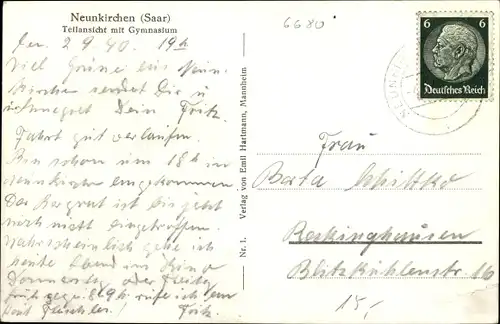 Neunkirchen (Saar)
Teilansicht mit Gymnasium
6680
den 2 9 40. 19h
Viel Grüße aus Neun-
kirchen sendet Dir
Dein Fritz.
Fahrt gut verlaufen.
Bin schon um 18 h in
Neunkirchen angekommen
Das ist bis jetzt
noch nicht eingetroffen.
Wahrscheinlich gehe ich
heute Abend ins Kino
Donnerstag oder Freitag
früh gegen 8-9 h rufe ich
Fritz.
Nr. 1.
Verlag von Emil Hartmann, Mannheim
6
6
Deutsches Reich
Frau
Berta Schittko
Recklinghausen
Blitzkuhlenstr 16
15,-